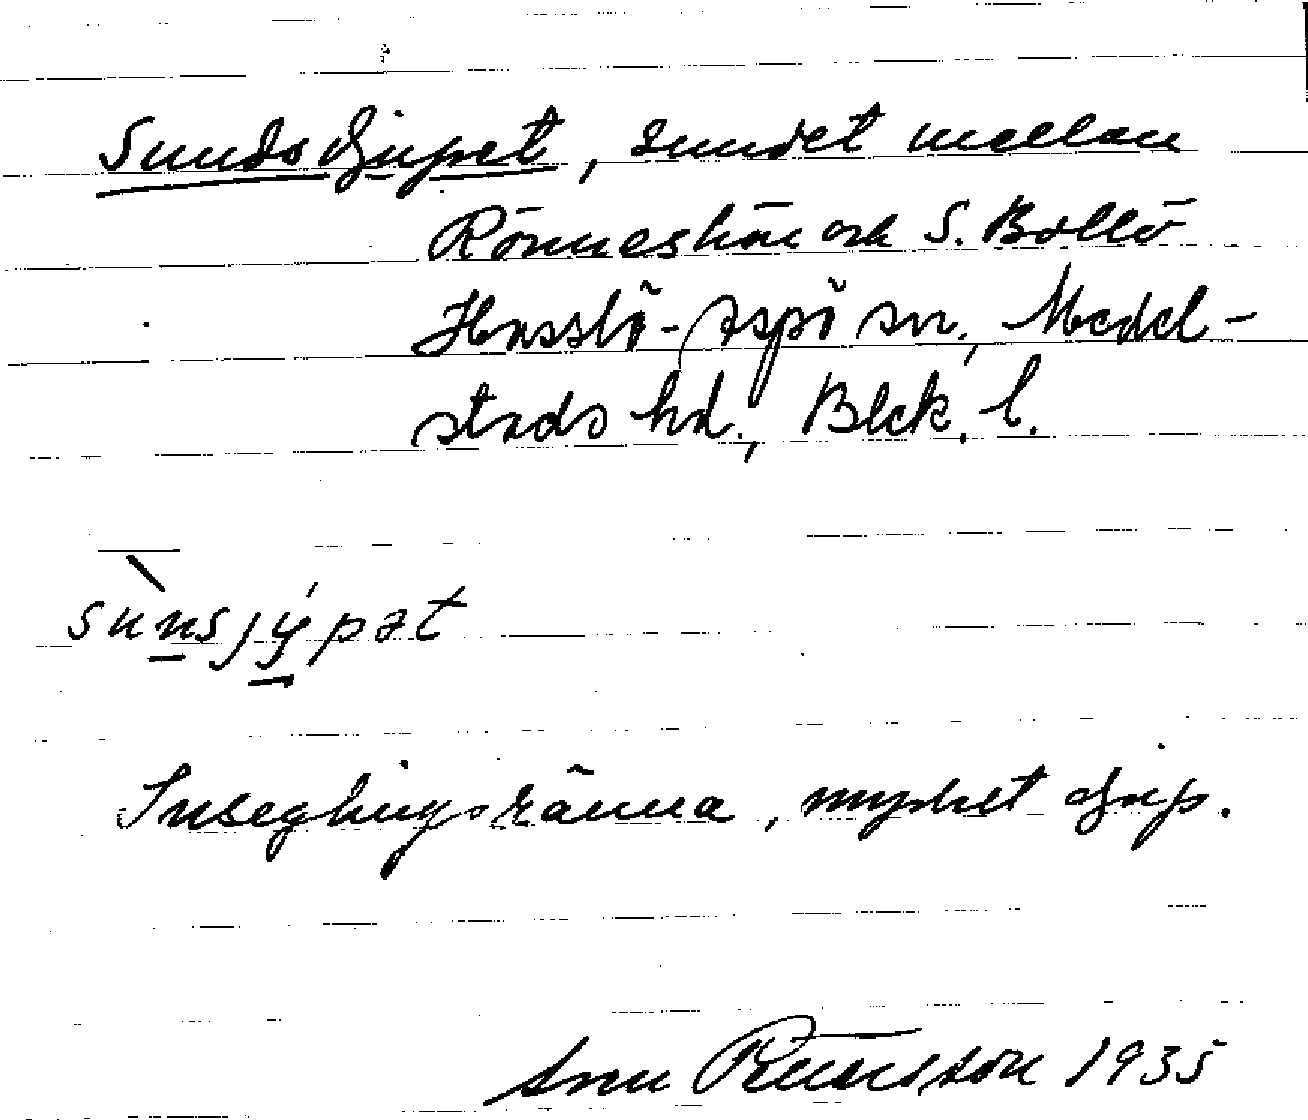 Sundsdjupet, sundet mellan
Rönneskär och S. Bollö
Hasslö-Aspö sn, Medel-
stads hd., Blek. l.
sùnsjýpət
Inseglingsränna, mycket djup.
1935